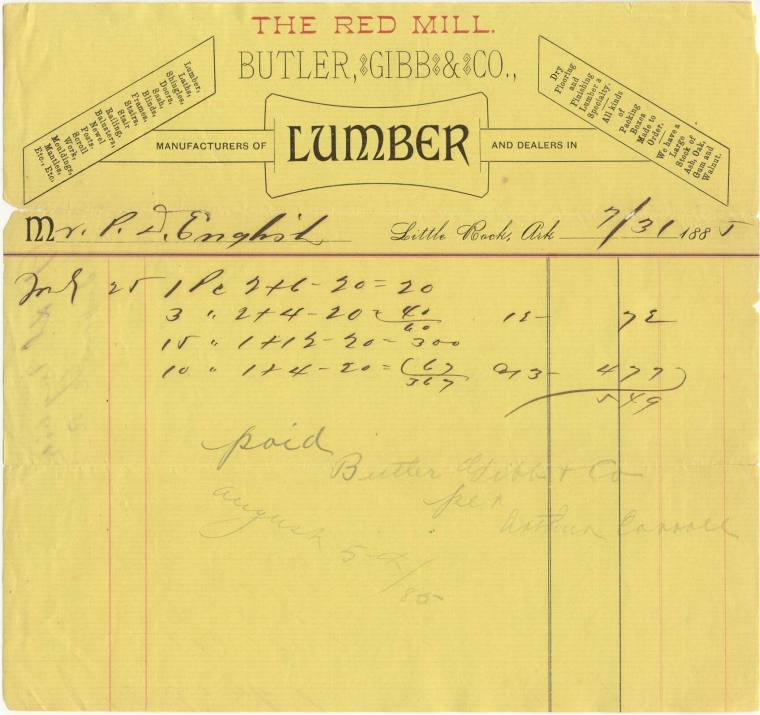 THE RED MILL.
BUTLER, GIBB & CO.,
Lumber,
Laths,
Shingles,
Doors,
Sash,
Blinds,
Frames,
Stairs,
Stair
Railing,
Balusters,
Newel
Posts,
Scroll
Work,
Mouldings,
Mantles,
Etc., Etc.
MANUFACTURERS OF
LUMBER
AND DEALERS IN
Dry
Flooring
and
Finishing
Lumber a
Specialty.
All kinds
of
Packing
Boxes
Made to
Order.
We have a
Large
Stock of
Ash, Oak,
Gum and
Walnut.
Mr. P. D. English Little Rock, Ark 7/31 1885
July 25 1 Pc 2+6-20=20
3 " 2+4-20= 40
60 12- 72
15 " 1+12-20- 300
10 " 1+4-20= 67
367 @13- 477
549
paid
Butler Gibb & Co
per
Arthur Carroll
August 5th/85